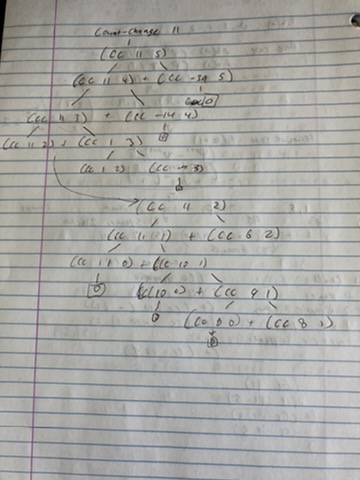 Count-change 11
(CC 11 5)
(CC 11 4) + (CC -39 5)
0
(CC 11 3) + (CC -14 4)
0
(CC 11 2) + (CC 1 3)
(CC 1 2) (CC -9 3)
0
(CC 11 2)
(CC 11 1) + (CC 6 2)
(CC 11 0) + (CC 10 1)
0 (CC 10 0) + (CC 9 1)
0
(CC 9 0) + (CC 8 1)
0